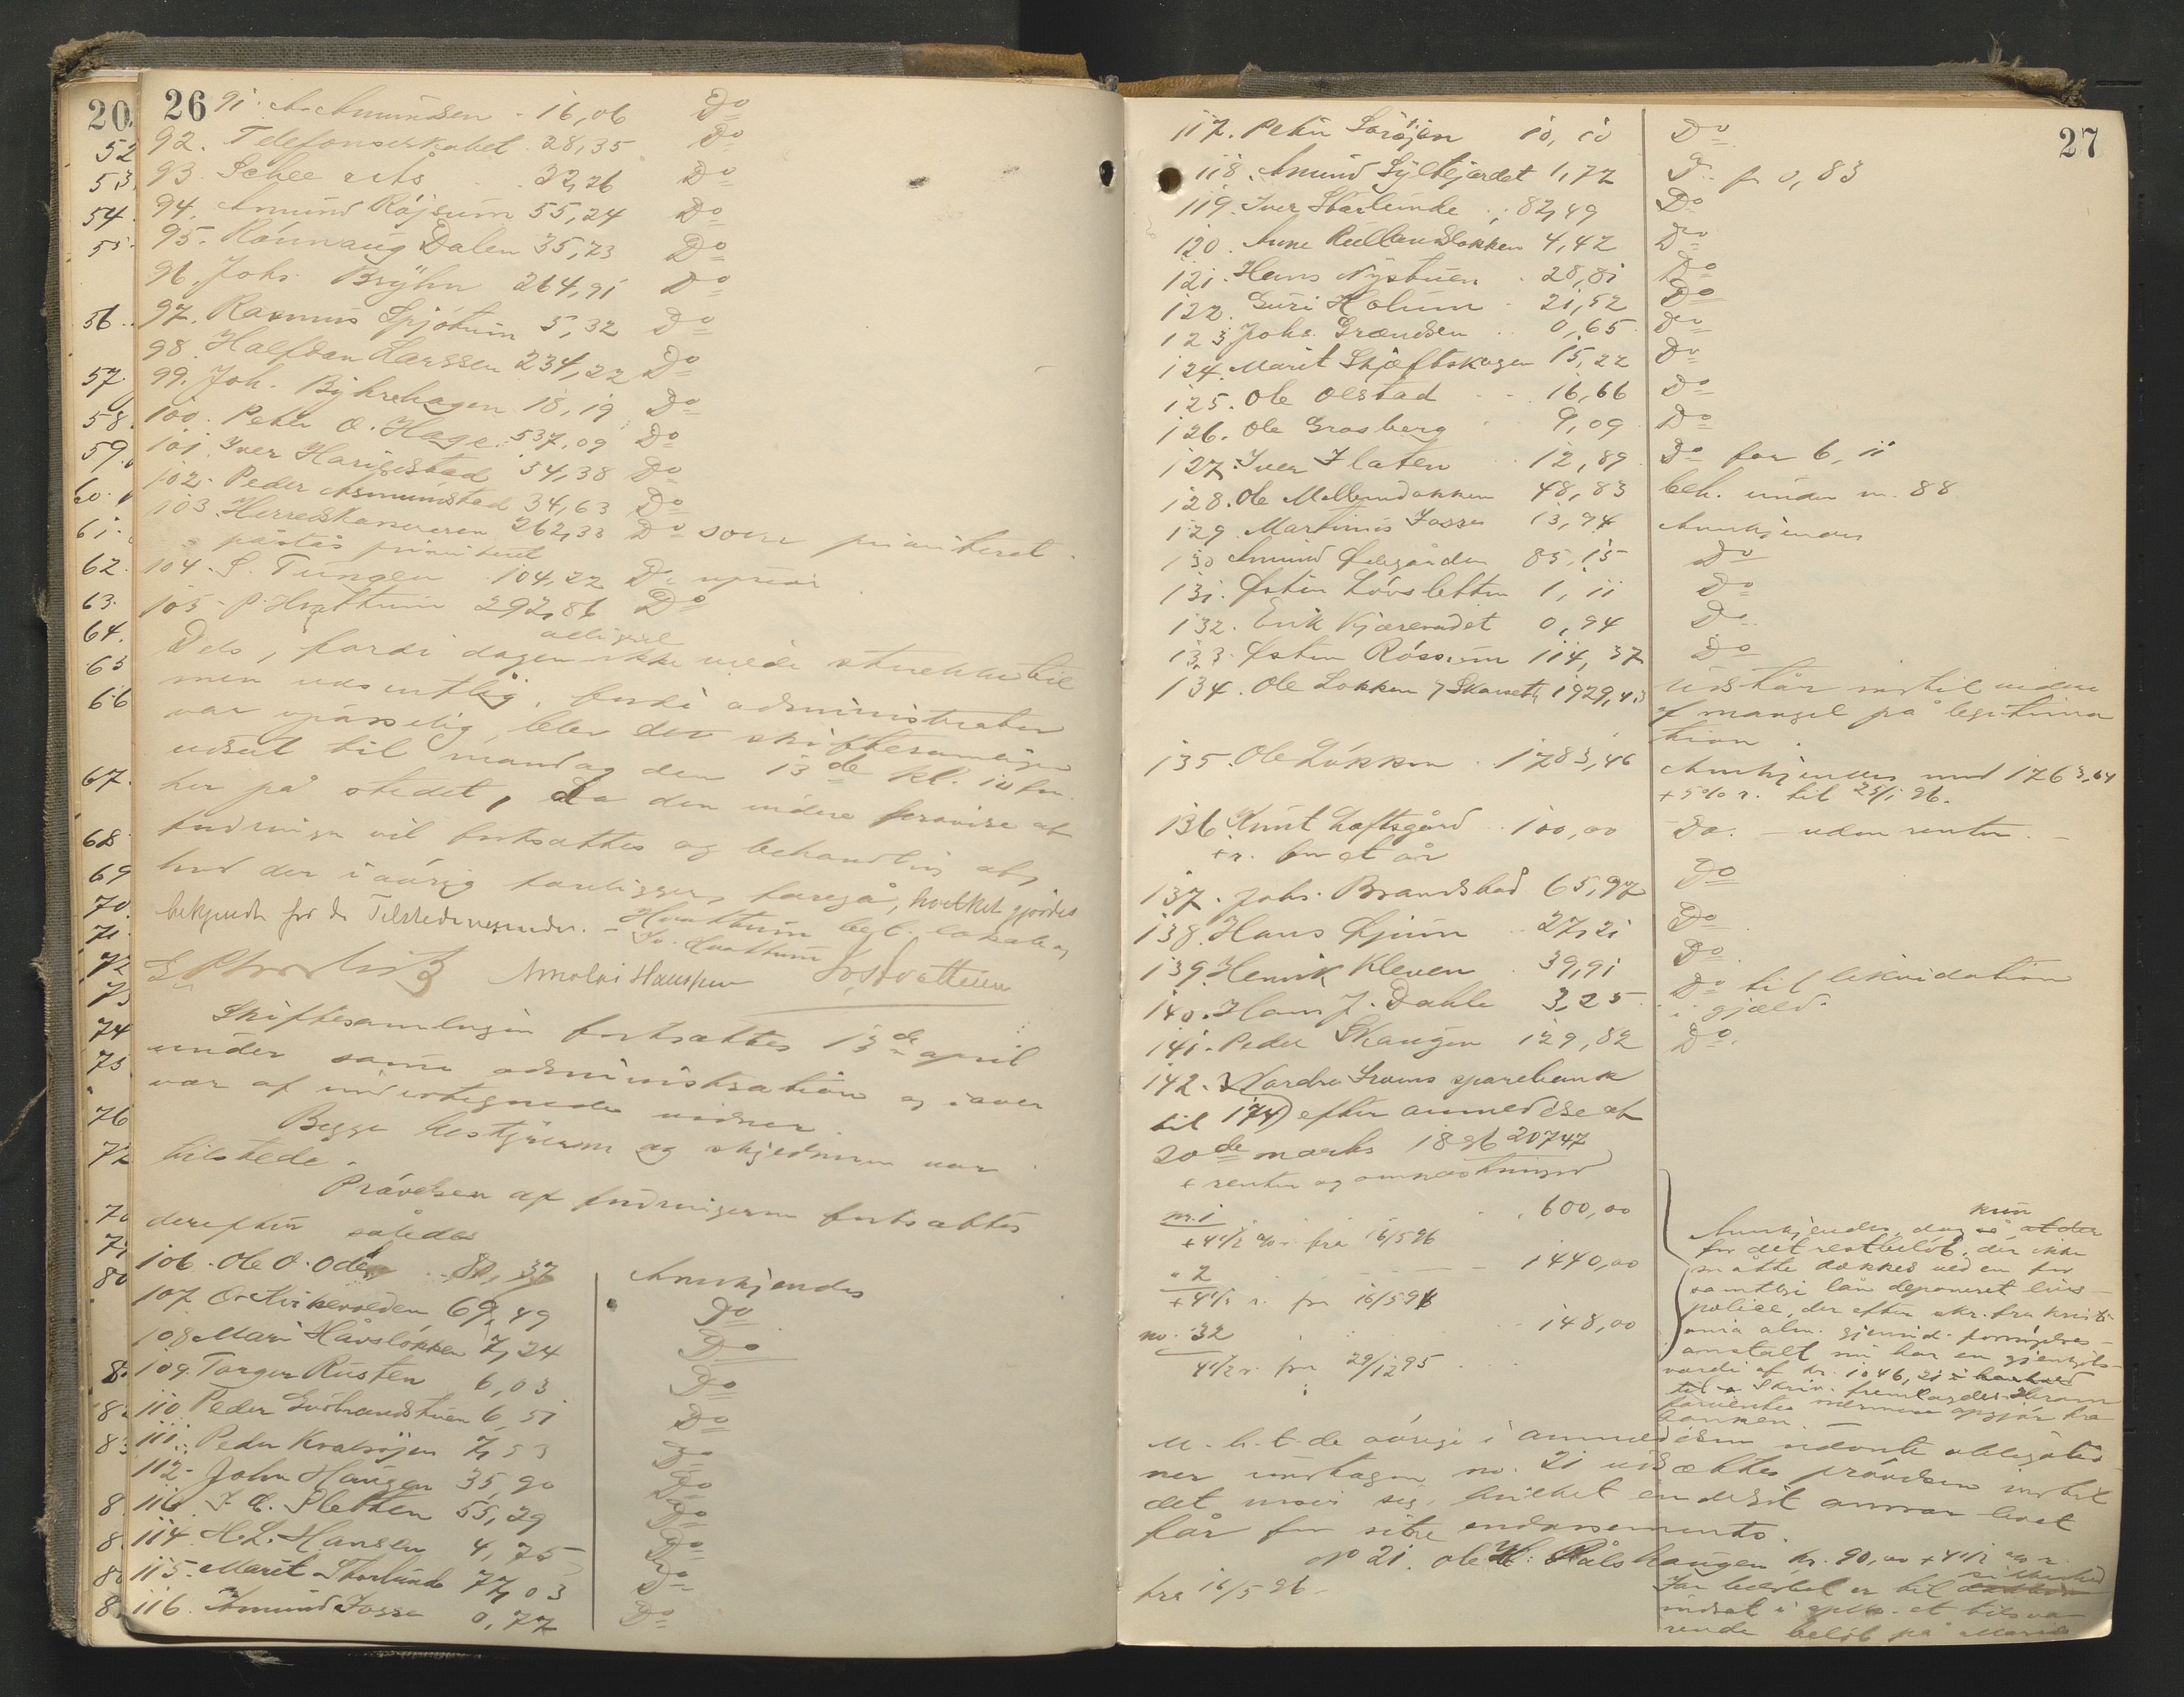 20.
52
53.
54.
55.
56.
57.
58.
59.
60.
61.
62.
63.
64.
65
66
67.
68.
69
70.
71.
72
73
74
75
76
77
80
26
91. A. Amundsen 16,06 Do
92. Telefonselskabet 28,35 Do
93. Schee 32,26 Do
94. Amund Röjsum 55,24 Do
95. Rönnaug Dalen 35,73 Do
96. Johs. Bryhn 264,91 Do
97. Rasmus Spjötum 5,32 Do
98. Halfdan Larssen 234,22 Do
99. Joh. Byhrehagen 18,19 Do
100. Peter O. Hage 537,09 Do
101. Iver Harildstad 54,38 Do
102. Peder Asmundstad 34,63 Do
103. Herredskassereren 262,33 Do som prioriteret.
påståes prioriteret
104. S. Tungen 104,22 Do uprior
105. P. Hvattum 292,86 Do
Dels, fordi dagen alligevel ikke vilde strække til
men væsentlig, fordi administrator
var upasselig, blev det skiftesamlingen
udsat til mandag den 13de kl. 10 fm.
her på stedet, da den videre prøvelse af
fordringer vil fortsættes og behandling af,
hvad der iøvrig foreligger, foregå, hvilket gjordes
bekjendt for de Tilstedeværende. –
Hvattum
Sv. Hvattum
Skiftesamlingen fortsattes 13de april
under samme administration og i over
vær af undertegnede vidner.
Begge bestyrerne og skyldneren var
tilstede.
Prövelsen af fordringerne fortsattes
derefter således
106. Ole O. Odde 80,37 Anerkjendes
107. O. Kirkevolden 69,49 Do
108 Mari Håvslökken 7,24 Do
109. Torger Rusten 6,03 Do
110 Peder Gudbrandstuen 6,51 Do
111. Peder Kvalsöyen 7,53 Do
112. John Haugen 35,90 Do
113. Sletten 55,29 Do
114 H. L. Hansen 4,75 Do
115. Marit Storlunde 77,03 Do
116. Amund Fosse 0,77 Do
27
117. Peter Soröjen 10,10 Do
118. Amund Syltejordet 1,77 Do for 0,83
119. Iver Storlunde 82,49 Do
120. Anne Rullandslökken 4,42 Do
121. Hans Nystuen 28,81 Do
122. Guri Holum 21,52 Do
123 Johs. Grændsen 0,65 Do
124. Marit Skjæftskagen 15,22 Do
125. Ole Olstad 16,66 Do
126. Ole Grosberg 9,09 Do
127. Iver Flaten 12,89 Do for 6,11
128. Ole Mellemdokken 48,83 beh. under nr. 88
129. Martinus Fosse 13,94 Anerkjendes
130 Amund Ödegården 85,15 Do
131. Östen Lövsletten 1,11 Do
132. Erik Kjæreriudet 0,94 Do
133. Östen Rössum 114,37 Do
134. Ole Lökken & Skarseth 1929,43 Udstår indtil videre
af mangel på legitima
tion.
135. Ole Lökken 1783,46 Anerkjendes med 1763,64
+ 5% r. til 25/1 96.
136 Knut Loftsgård 100,00 Do. – uden renter. –
+ r. for et år
137. Johs. Brandstad 65,97 Do
138. Hans Ljum 27,21 Do
139. Henrik Kleven 39,91 Do
140. Hans J. Dahle 3,25 Do til likvidation
i gjæld.
141. Peder Skaugen 129,82 Do.
142. Nordre Frons sparebank
til 174) efter anmeldelse af
20de marts 1896 20747
+ renter og omkostninger
nr. 1 600,00
+ 4 1/2 % r. fra 16/5 96
" 2 1440,00
+ 4 1/2 r. fra 16/5 96
no. 32 148,00
4 1/2 r. fra 29/12 95
Anerkjendes, dog kun
for det restbeløb, der ikke
måtte dækkes ved en for
samtlige lån deponeret livs-
police, der efter skr. fra kristi
ania alm. gjensid. forsörgelses-
anstalt nu har en gjenkjøbs-
værdi af kr. 1046,21
Skriv. fremlagdes. Herom
forventes nærmere opgjör fra
banken.
M. h. t. de øvrige i anmeldelsen nævnte obligatio
ner undtagen no. 21 udsættes prøvelsen indtil
det viser sig, hvilket endeligt ansvar boet
får for sine endossementer.
No 21. Ole H. Pålshaugen kr. 90,00 + 4 1/2 % r.
fra 16/5 96 –
For beløbet er til sikkerhed
indsat i spbk. et tilsva
rende beløb på Marit